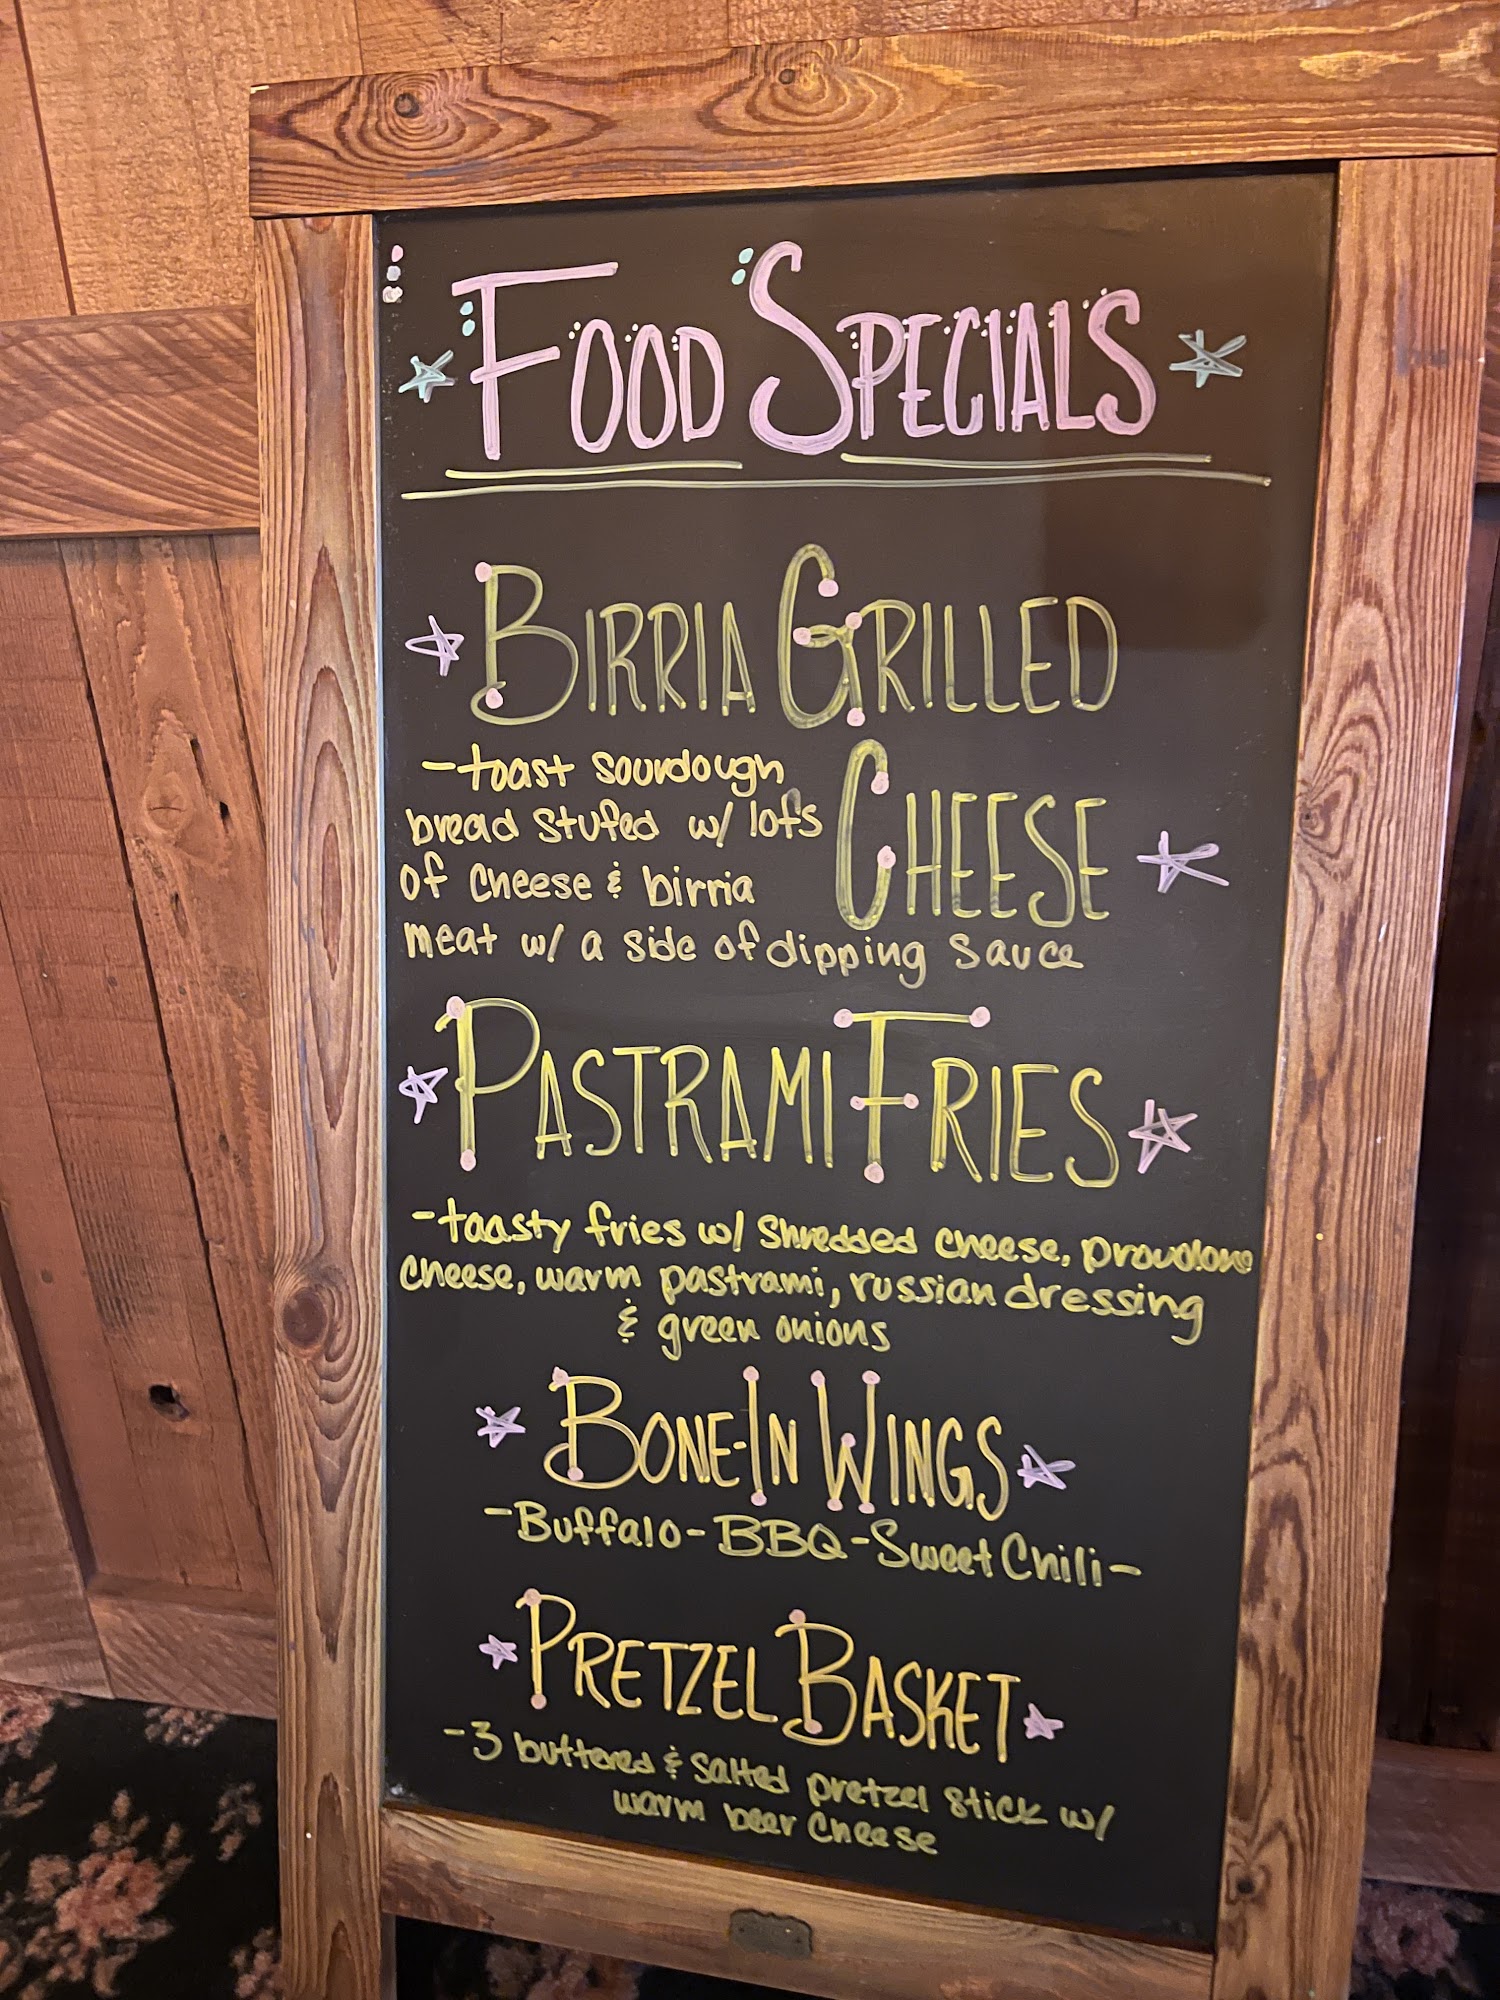 FOOD SPECIALS
BIRRIA GRILLED
CHEESE
-toast sourdough
bread stuffed w/ lots
of cheese & birria
meat w/ a side of dipping sauce
PASTRAMI FRIES
-taasty fries w/ shredded cheese, provolone
cheese, warm pastrami, russian dressing
& green onions
BONE-IN WINGS
-Buffalo-BBQ-Sweet Chili-
PRETZEL BASKET
-3 buttered & salted pretzel stick w/
warm beer cheese